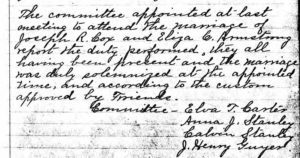 The committee appointed at last
meeting to attend the marriage of
Joseph R. Cox and Eliza C. Armstrong
report the duty performed, they all
having been present and the marriage
was duly solemnized at the appointed
time, and according to the custom
approved by Friends.
Committee - Elva T. Carter
Anna J. Stanley
Calvin Stanley
J. Henry Guyer